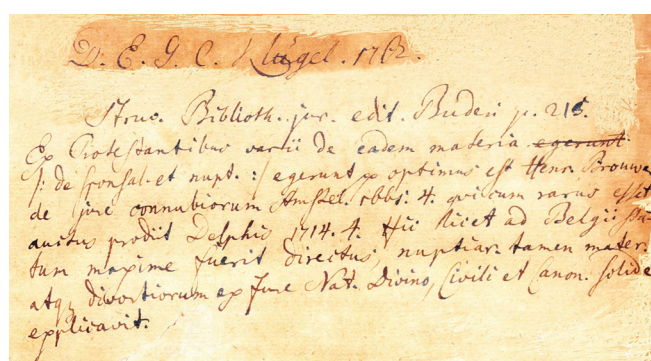 D. E. G. C. Klügel. 1762.
Struv. Biblioth. jur. edit. Buderi p. 215.
Ex Protestantibus varii de eadem materia egerunt
|: de sponsal. et nupt. :| egerunt optimus est Henr. Brouwe
de jure connubiorum Amstel. 1665. 4. qui cum rarus esset
auctus prodiit Delphis 1714. 4. Hic licet ad Belgii
tum maxime fuerit directus, nuptiar. tamen mater.
atq; divortiorum ex Jure Nat. Divino, Civili et Canon. solide
explicavit.